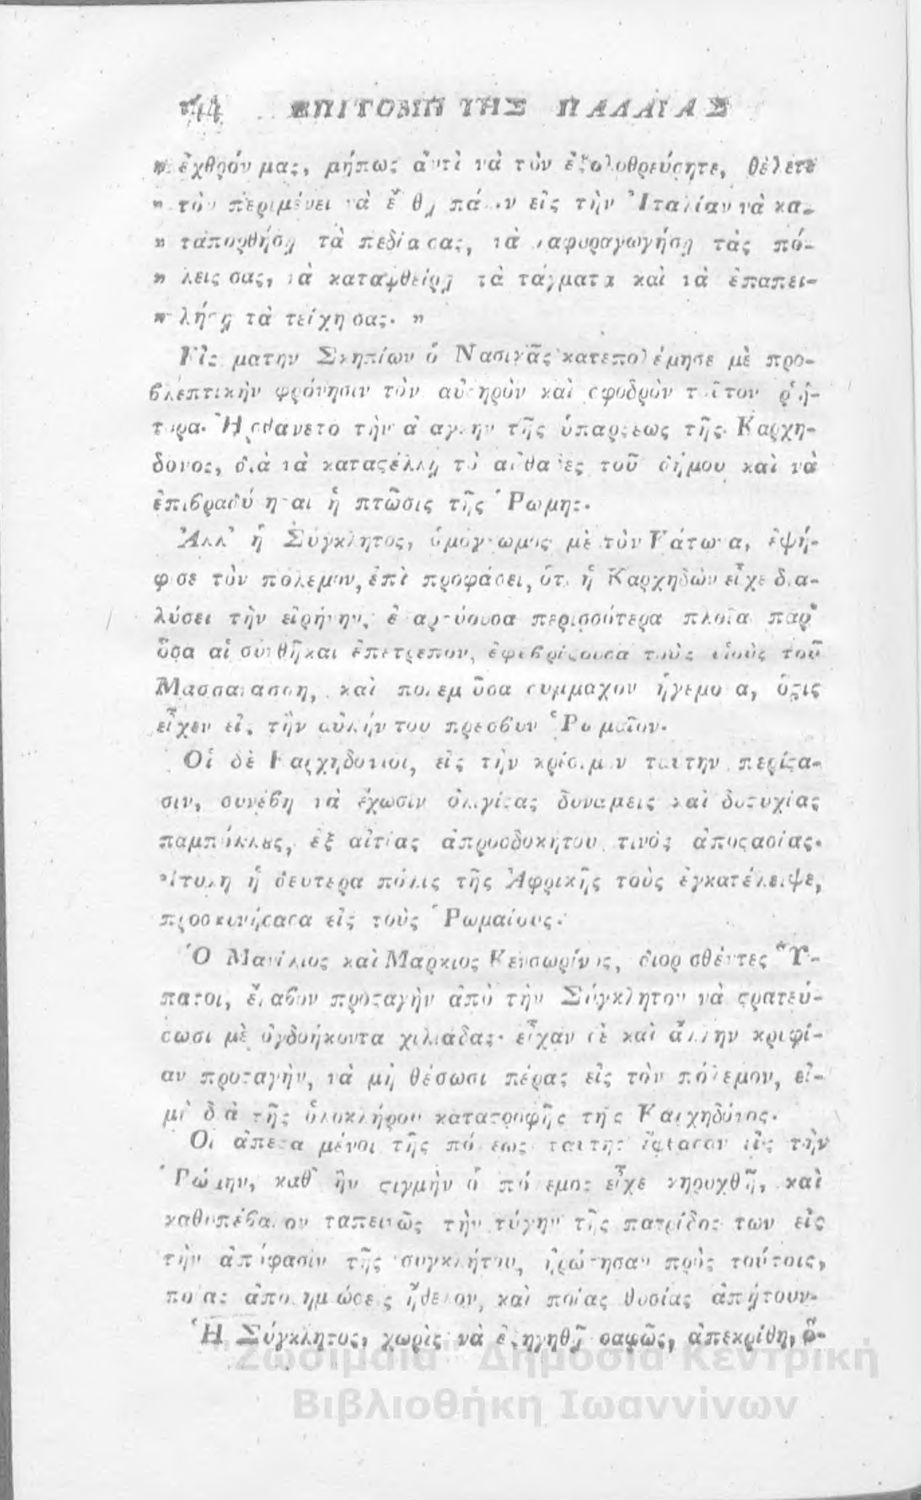 ΕΠΙΤΟΜΗ ΤΗΣ ΠΑΛΑΙΑΣ
» ἐχθρόν μας, μήπως ἀντὶ νὰ τὸν ἐξολοθρεύσητε, θέλετε
» τὸν περιμένει νὰ πάλιν εἰς τὴν Ἰταλίαν νὰ κα-
» ταπορθήσῃ τὰ πεδία σας, νὰ λαφυραγωγήσῃ τὰς πό-
» λεις σας, νὰ καταφθείρῃ τὰ τάγματα καὶ νὰ ἐπαπει-
» λήσῃ τὰ τείχη σας. »
Εἰς μάτην Σκηπίων ὁ Νασικᾶς κατεπολέμησε μὲ προ-
βλεπτικὴν φρόνησιν τὸν αὐστηρὸν καὶ σφοδρὸν τοῦτον ῥή-
τορα. Ἠσθάνετο τὴν ἀνάγκην τῆς ὑπάρξεως τῆς Καρχη-
δόνος, διὰ νὰ καταστέλλῃ τὸ αὔθαδες τοῦ δήμου καὶ νὰ
ἐπιβραδύνηται ἡ πτῶσις τῆς Ῥώμης.
Ἀλλ' ἡ Σύγκλητος, ὁμόγνωμος μὲ τὸν Κάτωνα, ἐψή-
φισε τὸν πόλεμον, ἐπὶ προφάσει, ὅτι ἡ Καρχηδὼν εἶχε δια-
λύσει τὴν εἰρήνην, ἐξαρτύουσα περισσότερα πλοῖα παρ'
ὅσα αἱ συνθῆκαι ἐπέτρεπον, ἐφυβρίζουσα τοὺς υἱοὺς τοῦ
Μασσανάσση, καὶ πολεμοῦσα σύμμαχον ἡγεμόνα, ὅςις
εἶχεν εἰς τὴν αὐλήν του πρέσβυν Ῥωμαῖον.
Οἱ δὲ Καρχηδόνιοι, εἰς τὴν κρίσιμον ταύτην περίςα-
σιν, συνέβη νὰ ἔχωσιν ὀλιγίςας δυνάμεις καὶ δυςυχίας
παμπόλλας, ἐξ αἰτίας ἀπροσδοκήτου τινὸς ἀποςασίας.
Ἰτύκη ἡ δευτέρα πόλις τῆς Ἀφρικῆς τοὺς ἐγκατέλειψε,
προσκυνήσασα εἰς τοὺς Ῥωμαίους.
Ὁ Μανίλιος καὶ Μάρκιος Κενσωρίνος, διορισθέντες Ὕ-
πατοι, ἔλαβον προςαγὴν ἀπὸ τὴν Σύγκλητον νὰ ςρατεύ-
σωσι μὲ ὀγδοήκοντα χιλιάδας· εἶχαν δὲ καὶ ἄλλην κρυφί-
αν προςαγὴν, νὰ μὴ θέσωσι πέρας εἰς τὸν πόλεμον, εἰ-
μὴ διὰ τῆς ὁλοκλήρου καταςροφῆς τῆς Καρχηδόνος.
Οἱ ἀπεςαλμένοι τῆς πόλεως ταύτης ἔφτασαν εἰς τὴν
Ῥώμην, καθ' ἣν ςιγμὴν ὁ πόλεμος εἶχε κηρυχθῆ, καὶ
καθυπέβαλον ταπεινῶς τὴν τύχην τῆς πατρίδος των εἰς
τὴν ἀπόφασιν τῆς συγκλήτου, ἠρώτησαν πρὸς τούτοις,
ποίας ἀποζημιώσεις ἤθελον, καὶ ποίας θυσίας ἀπῄτουν.
Ἡ Σύγκλητος, χωρὶς νὰ ἐξηγηθῇ σαφῶς, ἀπεκρίθη, ὅ-
Ζωσιμαία Δημόσια Κεντρική
Βιβλιοθήκη Ιωαννίνων